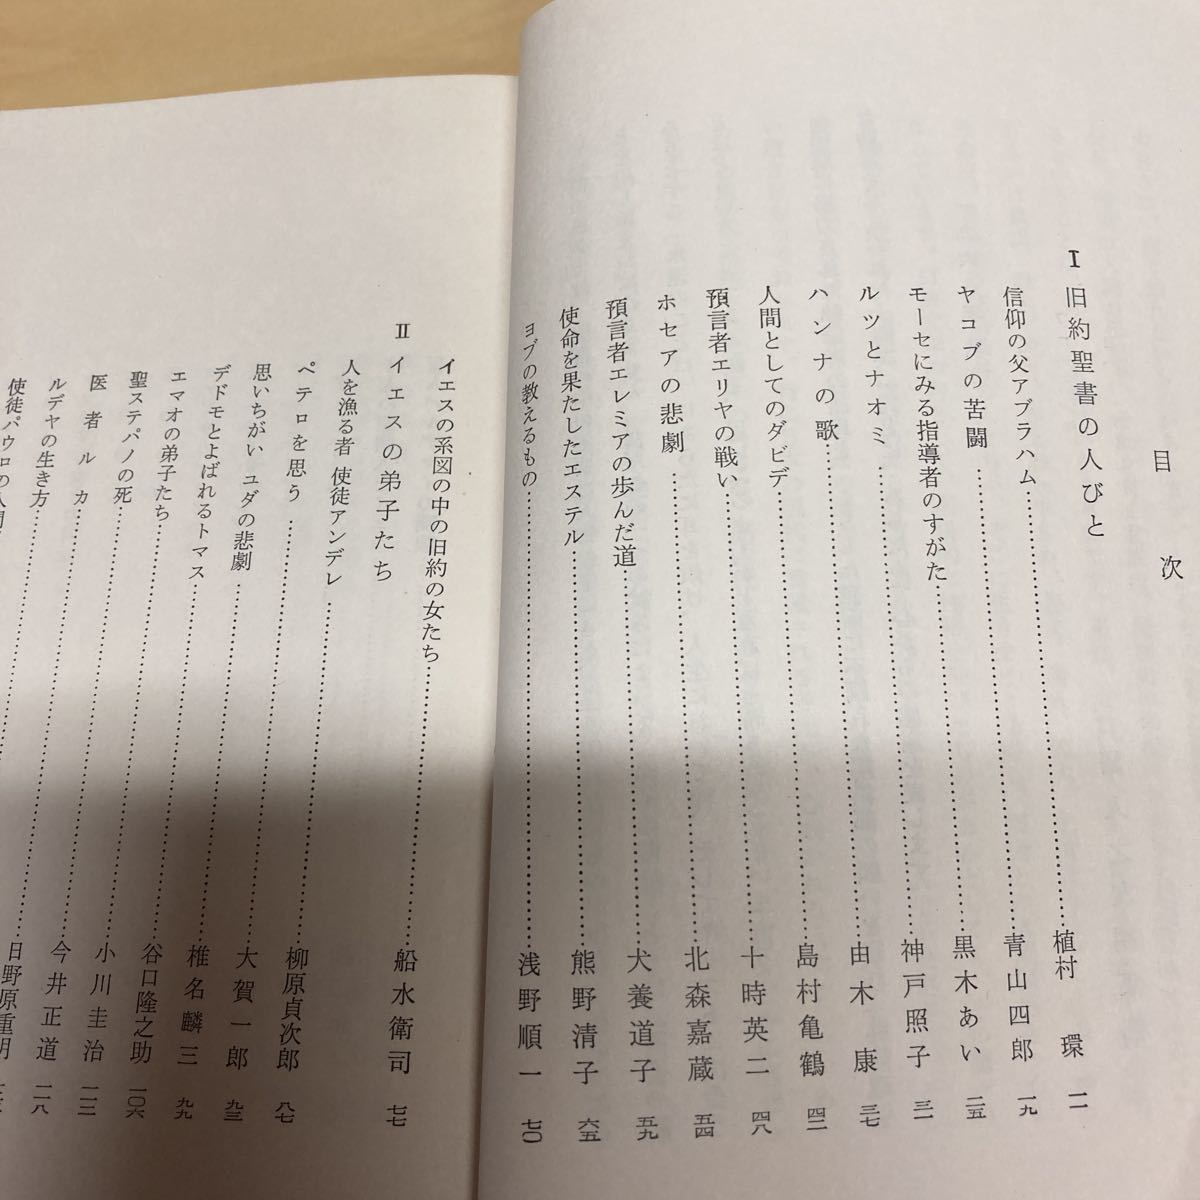 目次
Ⅰ 旧約聖書の人びと
信仰の父アブラハム……植村 環 一一
ヤコブの苦闘……青山四郎 一九
モーセにみる指導者のすがた……黒木あい 二五
ルツとナオミ……神戸照子 三一
ハンナの歌……由木 康 三七
人間としてのダビデ……島村亀鶴 四二
預言者エリヤの戦い……十時英二 四八
ホセアの悲劇……北森嘉蔵 五四
預言者エレミアの歩んだ道……犬養道子 五九
使命を果たしたエステル……熊野清子 六五
ヨブの教えるもの……浅野順一 七〇
イエスの系図の中の旧約の女たち……船水衛司 七七
Ⅱ イエスの弟子たち
人を漁る者 使徒アンデレ……柳原貞次郎 八七
ペテロを思う……大賀一郎 九三
思いちがい ユダの悲劇……椎名麟三 九九
デドモとよばれるトマス……谷口隆之助 一〇六
エマオの弟子たち……小川圭治 一一二
聖ステパノの死……今井正道 一一八
医者ルカ……日野原重明
ルデヤの生き方……
使徒パウロの人間